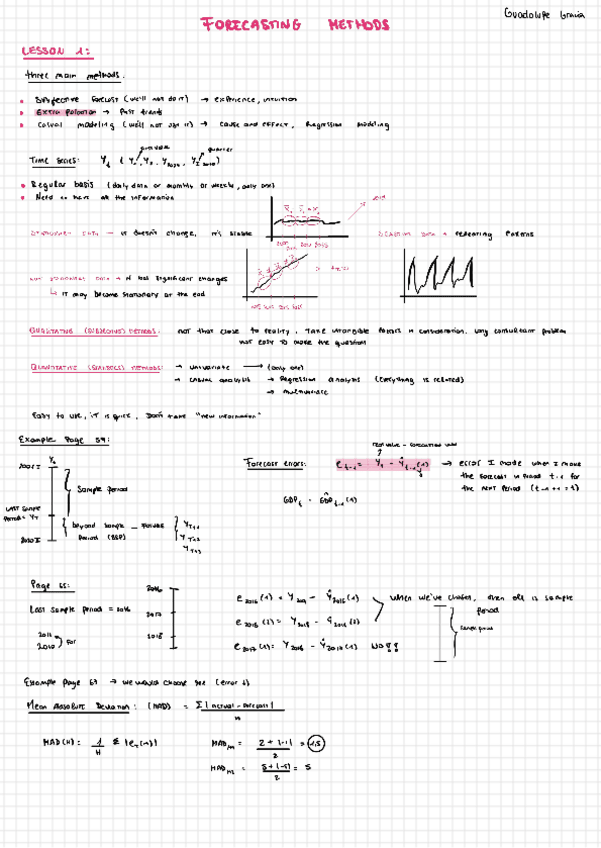 Guadalupe Gracia
FORECASTING METHODS
LESSON 1:
three main methods:
Subjective forecast (we'll not do it) → experience, intuition
Extrapolation → Past trends
Casual modeling (we'll not use it) → cause and effect, Regression modeling
Time series: Yt (
quarter
Regular basis (daily data or monthly or weekly, only one)
Need to have all the information
STATIONARY DATA → it doesn't change, it's stable
SEASONAL DATA → repeating patterns
NOT STATIONARY DATA → it has significant changes
↳ it may become stationary at the end
QUALITATIVE (SUBJECTIVE) METHODS: not that close to reality, take intangible factors in consideration. Why consultant problem
not easy to make the question
QUANTITATIVE (STATISTICS) METHODS: → univariate → (only one)
→ causal analysis → Regression analysis (everything is related)
→ multivariate
Easy to use, it is quick, Don't take "new information"
Example Page 54:
Yt
2001 I
Sample period
LAST Sample
Period = YT
beyond sample - Future
Period (BSP)
YT+1
YT+2
YT+3
Forecast errors:
real value - forecasting value
et-1 = Yt - Ŷt-1(1) → error I made when I make
the forecast in period t-1 for
the next period (t-1+1 = t)
GDPt - GDPt-1(1)
Page 55:
Last sample period = 2016
2016
2017
2018
e2016(1) = Y2017 - Ŷ2016(1)
e2016(2) = Y2018 - Ŷ2016(2)
e2017(1) = Y2018 - Ŷ2017(1) NO!!
when we've chosen, then all is sample
period
Sample period
Example page 67 → we would choose the (error 1)
Mean Absolute Deviation: (MAD) = Σ|actual - forecast|
n
MAD(H): 1/H Σ |eT(h)|
MADM1 = 2 + |-1| / 2 = 1,5
MADM2 = 5 + |-5| / 2 = 5